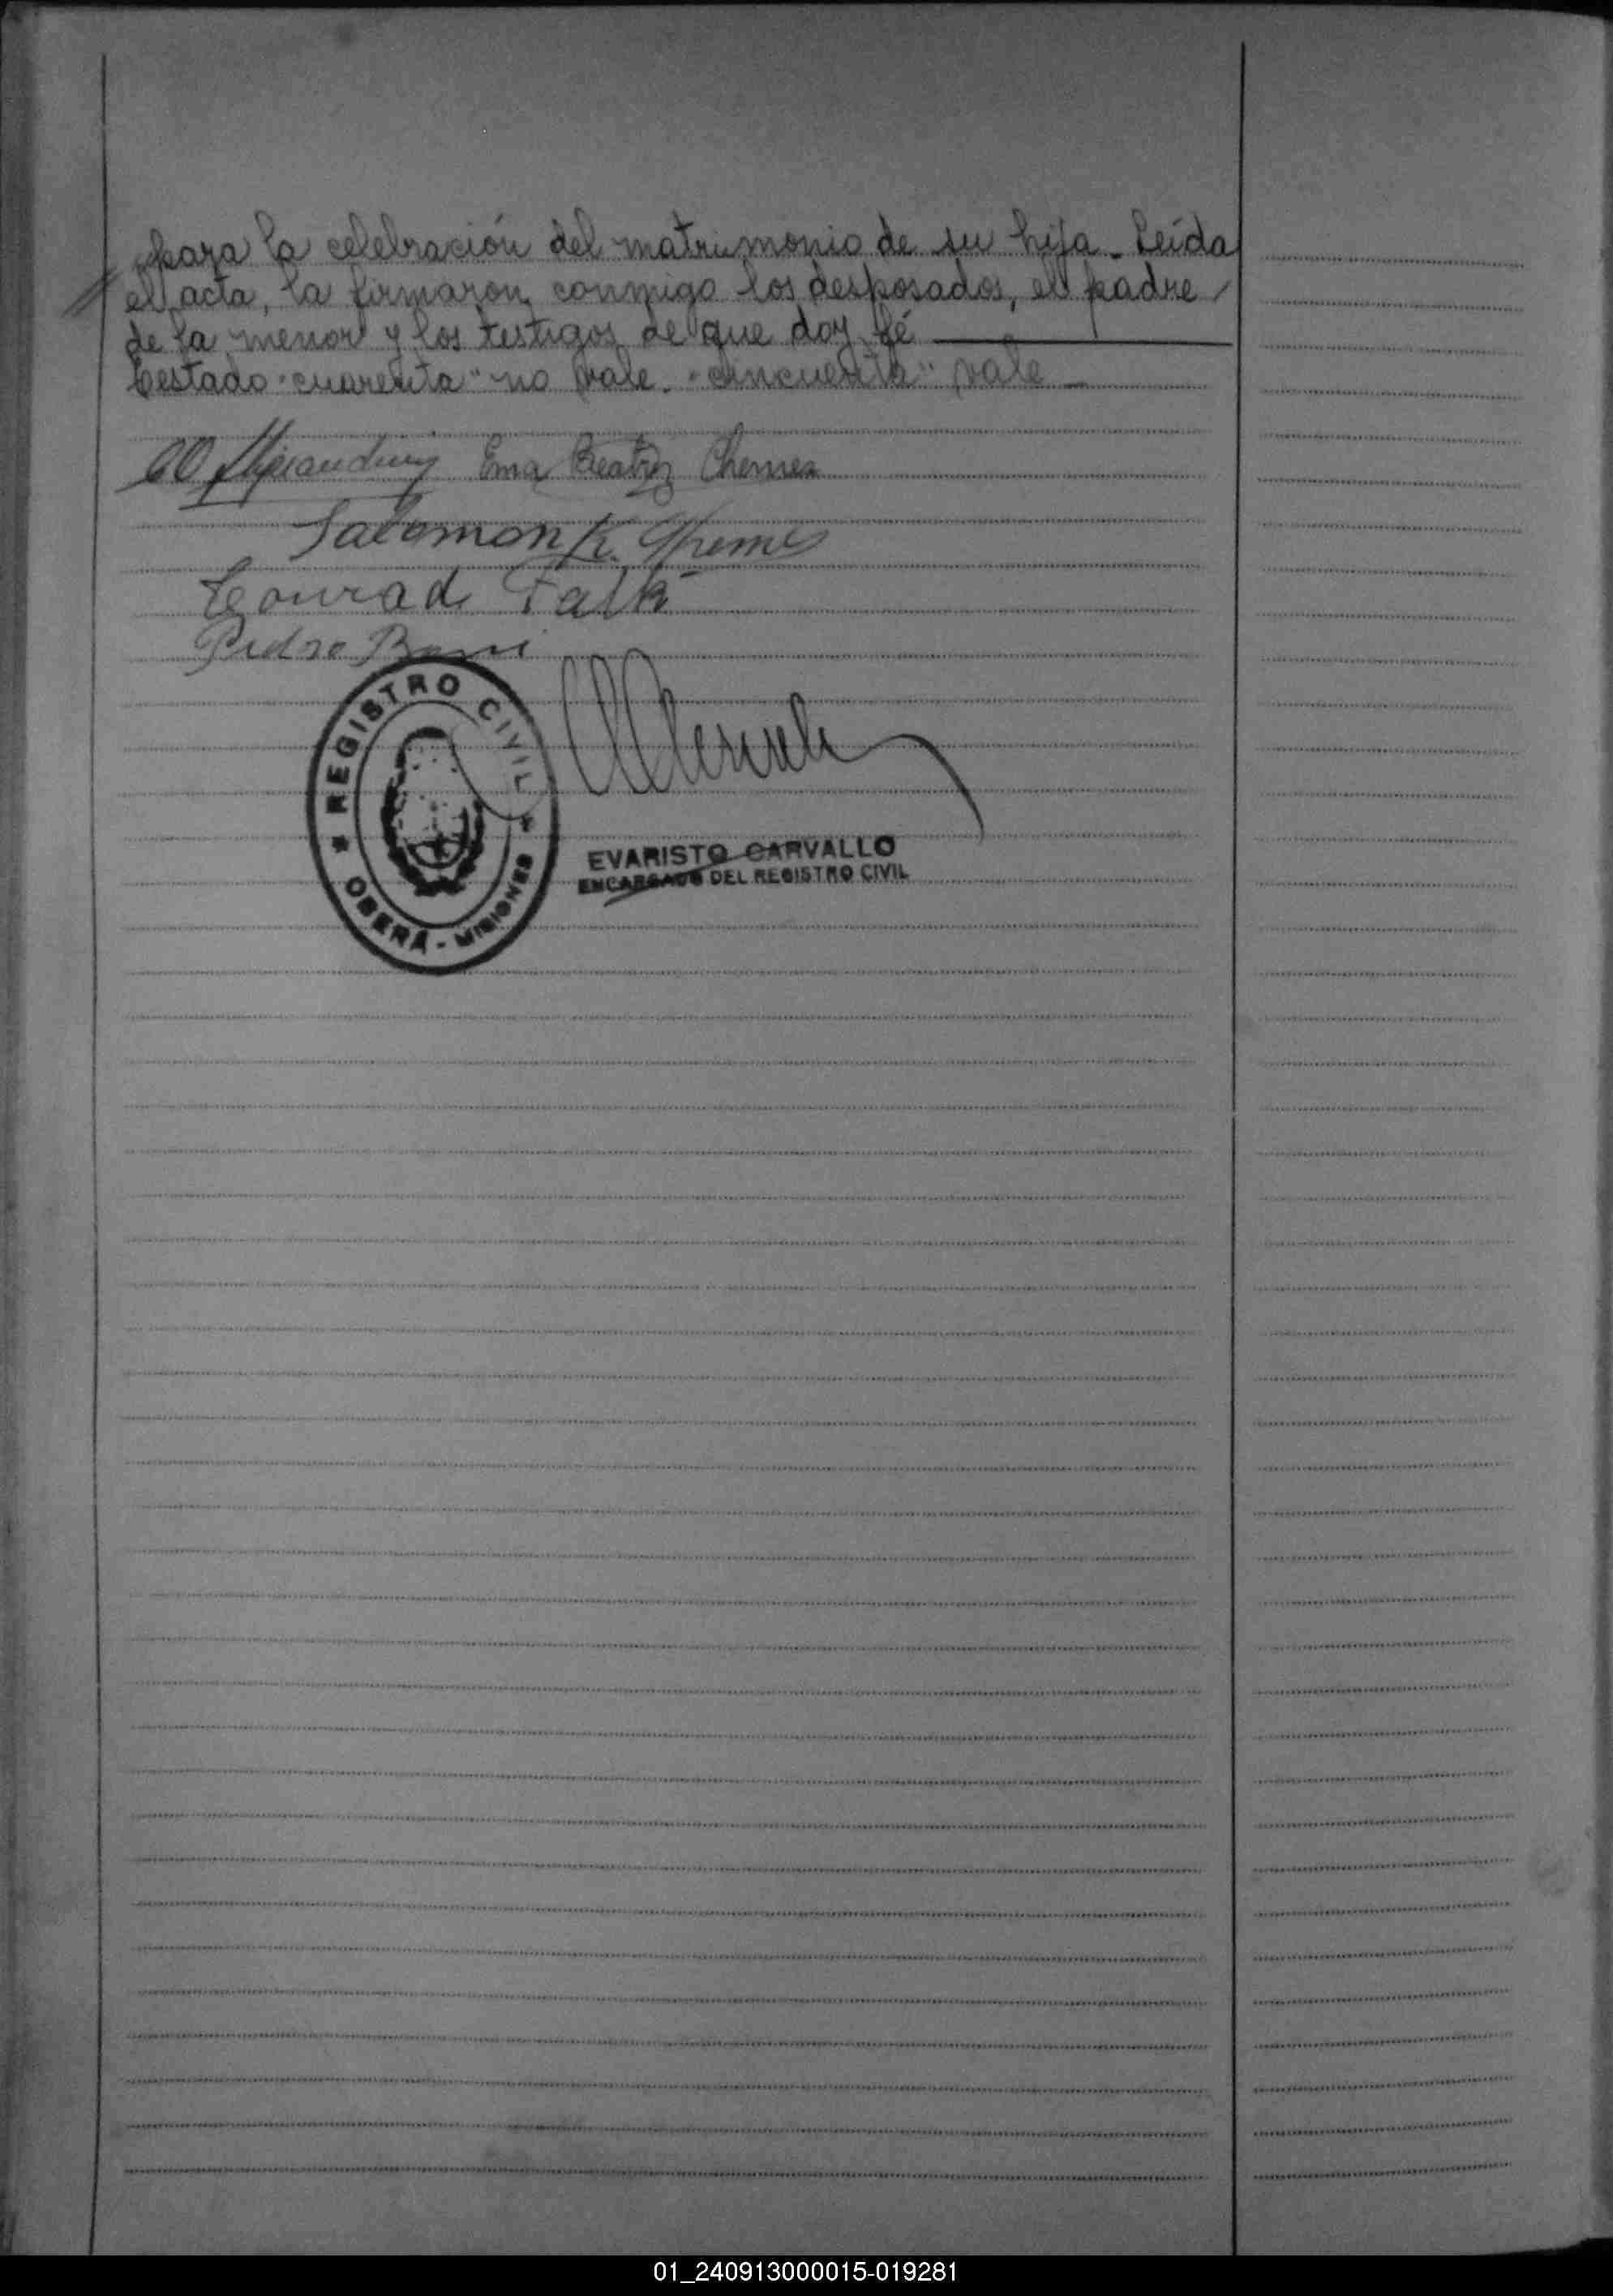 para la celebración del matrimonio de su hija. Leída
el acta, la firmaron conmigo los desposados, el padre
de la menor y los testigos de que doy fé
Testado "cuarenta" no vale. "cincuenta" vale
Ema Beatriz Chemes
Salomon K. Chemes
Conrad Falk
Pedro
REGISTRO CIVIL
OBERÁ - MISIONES
EVARISTO CARVALLO
ENCARGADO DEL REGISTRO CIVIL
01_240913000015-019281